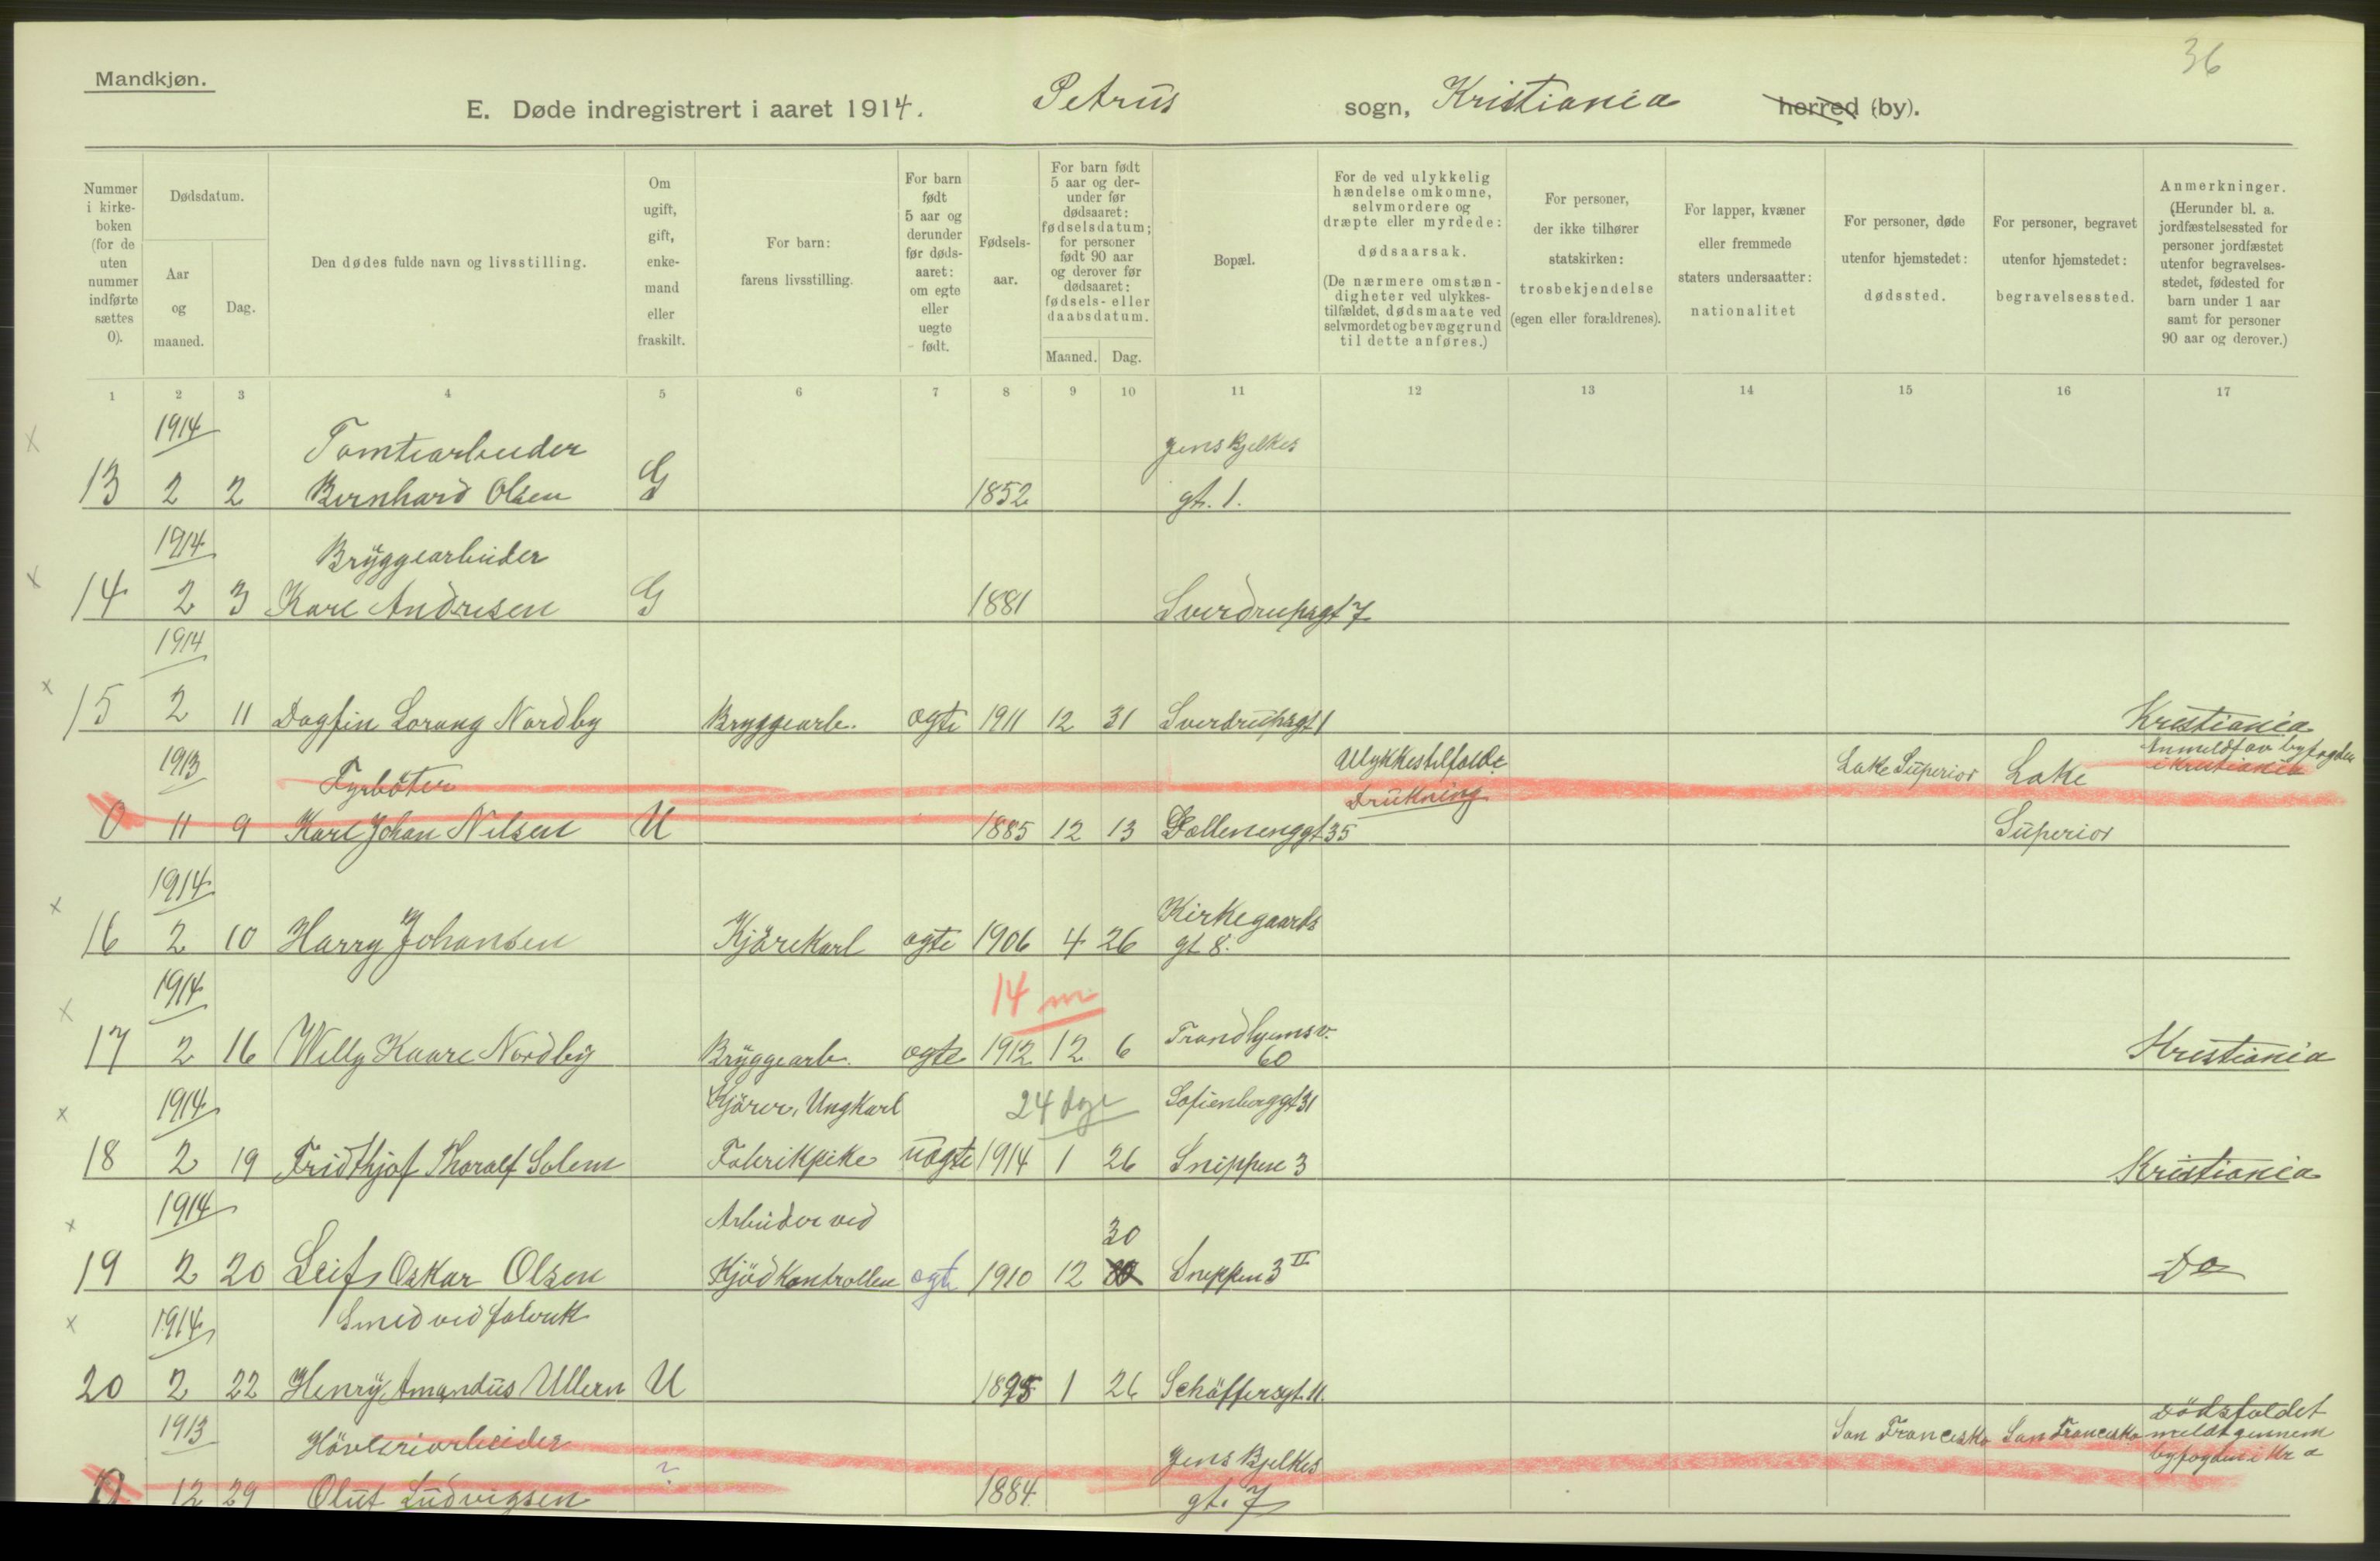 36
Mandkjøn.
E. Døde indregistrert i aaret 1914. Petrus sogn, Kristiania herred (by).
Nummer i kirke-boken (for de uten nummer indførte sættes 0).
Dødsdatum.
Aar og maaned.
Dag.
Den dødes fulde navn og livsstilling.
Om ugift, gift, enke-mand eller fraskilt.
For barn: farens livsstilling.
For barn født 5 aar og derunder før døds-aaret: om egte eller uegte født.
Fødsels-aar.
For barn født 5 aar og der-under før dødsaaret: fødselsdatum; for personer født 90 aar og derover før dødsaaret: fødsels- eller daabsdatum.
Maaned. Dag.
Bopæl.
For de ved ulykkelig hændelse omkomne, selvmordere og dræpte eller myrdede: dødsaarsak. (De nærmere omstæn-digheter ved ulykkes-tilfældet, dødsmaate ved selvmordet og bevæggrund til dette anføres.)
For personer, der ikke tilhører statskirken: trosbekjendelse (egen eller forældrenes).
For lapper, kvæner eller fremmede staters undersaatter: nationalitet
For personer, døde utenfor hjemstedet: dødssted.
For personer, begravet utenfor hjemstedet: begravelsessted.
Anmerkninger. (Herunder bl. a. jordfæstelsessted for personer jordfæstet utenfor begravelses-stedet, fødested for barn under 1 aar samt for personer 90 aar og derover.)
1 2 3 4 5 6 7 8 9 10 11 12 13 14 15 16 17
x 1914 Tomtearbeider Jens Bjelkes
13 2 2 Bernhard Olsen G 1852 gt. 1.
1914 Bryggearbeider
x 14 2 3 Karl Andresen G 1881 Sverdrupsgt 7
1914
x 15 2 11 Dagfin Lorang Nordby Bryggearb. ægte 1911 12 31 Sverdrupsgt 1 Kristiania
1913 Fyrbøter Ulykkestilfælde Lake Superior Lake Anmeldt av byfogden i Kristiania
0 11 9 Karl Johan Nilsen U 1885 12 13 Dællenenggt 35 Drukning Superior
1914 Kirkegaards
x 16 2 10 Harry Johansen Kjørekarl ægte 1906 4 26 gt 8.
1914 14 m
x 17 2 16 Willy Kaare Nordby Bryggearb. ægte 1912 12 6 Trondhjemsv. 60 Kristiania
1914 Kjører, Ungkarl 24 dge Sofienberggt 31
x 18 2 19 Fridthjof Thoralf Solem Fabrikpike uægte 1914 1 26 Snippen 3 Kristiania
1914 Arbeider ved 30
x 19 2 20 Leif Oskar Olsen Kjødkontrollen ægte 1910 12 Snippen 3 II Do
x 1914 Smed ved fabrik
20 2 22 Henry Amandus Ullern U 1895 1 26 Schäffersgt. 11.
1913 Høvleriarbeider Jens Bjelkes San Francisko San Francisko Dødsfaldet meldt gjennem byfogden i Kr a
0 12 29 Oluf Ludvigsen ? 1884 gt. 7